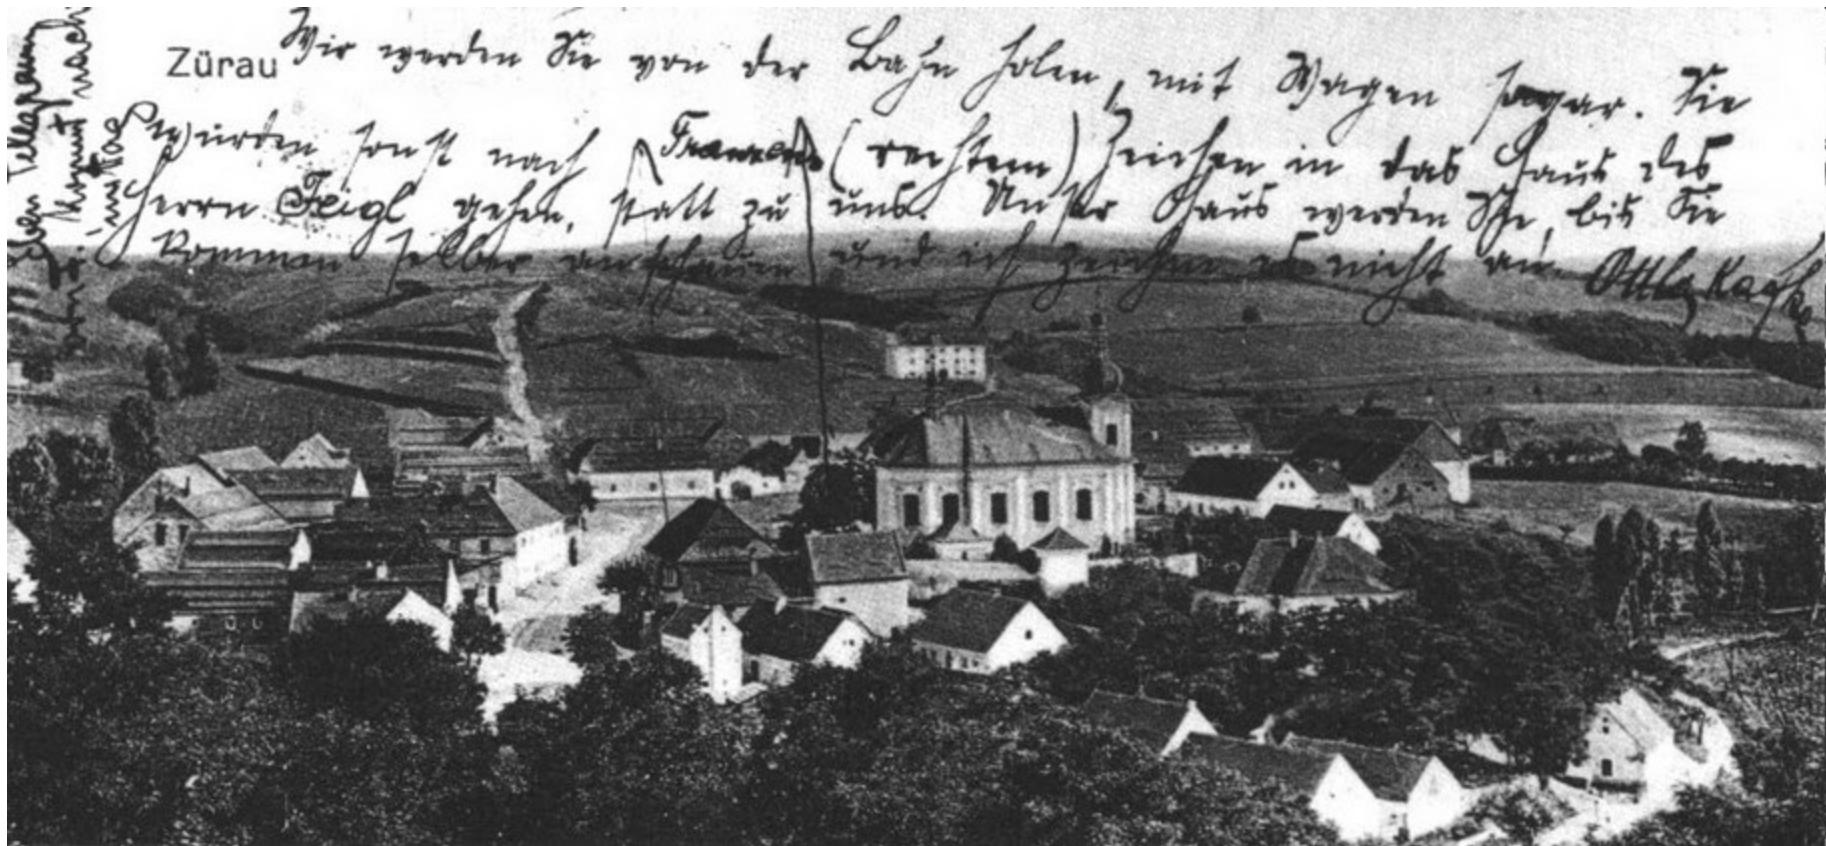 Zürau
Wir werden Sie von der Bahn holen, mit Wagen sogar. Sie
würden sonst nach (rechtem) Zeichen in das Haus des
Herrn Feigl gehen, statt zu uns. Unser Haus werden Sie, bis Sie
kommen selber anschauen und ich zeichne es nicht an. Ottla Kafka
eben Telegramm
nach
mittag